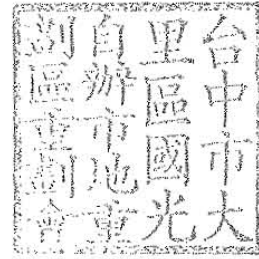 台中市大
里區國光
自辦市地重
劃區重劃會